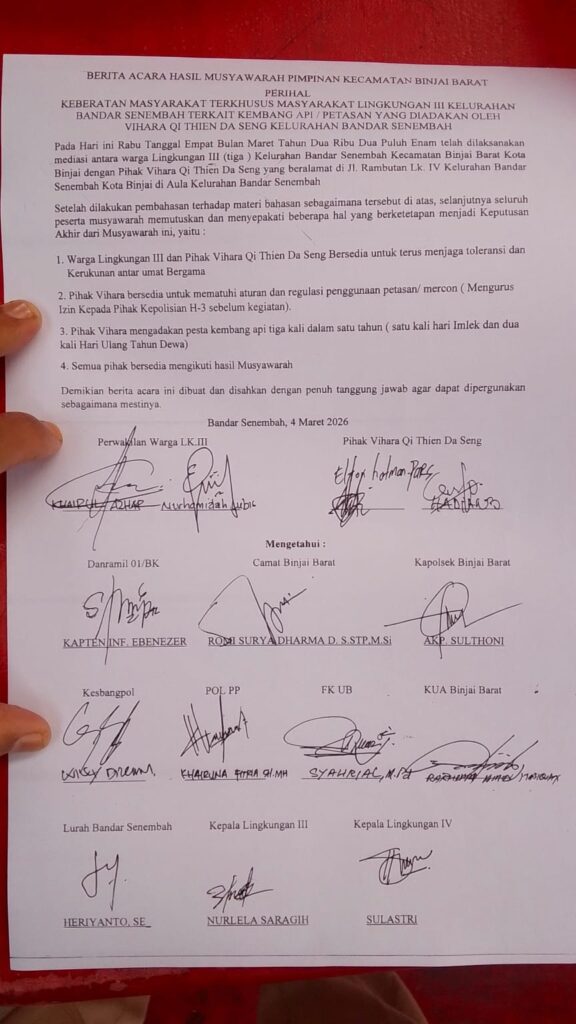 BERITA ACARA HASIL MUSYAWARAH PIMPINAN KECAMATAN BINJAI BARAT
PERIHAL
KEBERATAN MASYARAKAT TERKHUSUS MASYARAKAT LINGKUNGAN III KELURAHAN
BANDAR SENEMBAH TERKAIT KEMBANG API / PETASAN YANG DIADAKAN OLEH
VIHARA QI THIEN DA SENG KELURAHAN BANDAR SENEMBAH
Pada Hari ini Rabu Tanggal Empat Bulan Maret Tahun Dua Ribu Dua Puluh Enam telah dilaksanakan
mediasi antara warga Lingkungan III (tiga ) Kelurahan Bandar Senembah Kecamatan Binjai Barat Kota
Binjai dengan Pihak Vihara Qi Thien Da Seng yang beralamat di Jl. Rambutan Lk. IV Kelurahan Bandar
Senembah Kota Binjai di Aula Kelurahan Bandar Senembah
Setelah dilakukan pembahasan terhadap materi bahasan sebagaimana tersebut di atas, selanjutnya seluruh
peserta musyawarah memutuskan dan menyepakati beberapa hal yang berketetapan menjadi Keputusan
Akhir dari Musyawarah ini, yaitu :
1. Warga Lingkungan III dan Pihak Vihara Qi Thien Da Seng Bersedia untuk terus menjaga toleransi dan
Kerukunan antar umat Bergama
2. Pihak Vihara bersedia untuk mematuhi aturan dan regulasi penggunaan petasan/ mercon ( Mengurus
Izin Kepada Pihak Kepolisian H-3 sebelum kegiatan).
3. Pihak Vihara mengadakan pesta kembang api tiga kali dalam satu tahun ( satu kali hari Imlek dan dua
kali Hari Ulang Tahun Dewa)
4. Semua pihak bersedia mengikuti hasil Musyawarah
Demikian berita acara ini dibuat dan disahkan dengan penuh tanggung jawab agar dapat dipergunakan
sebagaimana mestinya.
Bandar Senembah, 4 Maret 2026
Perwakilan Warga LK.III Pihak Vihara Qi Thien Da Seng
KHAIRUL AZHAR Nurhamidah Lubis
Mengetahui :
Danramil 01/BK Camat Binjai Barat Kapolsek Binjai Barat
KAPTEN INF. EBENEZER ROMI SURYA DHARMA D. S.STP,M.Si AKP. SULTHONI
Kesbangpol POL PP FK UB KUA Binjai Barat
KHAIRUNA FITRIA SH.MH SYAHRIAL, M.Pd
Lurah Bandar Senembah Kepala Lingkungan III Kepala Lingkungan IV
HERIYANTO, SE_ NURLELA SARAGIH SULASTRI